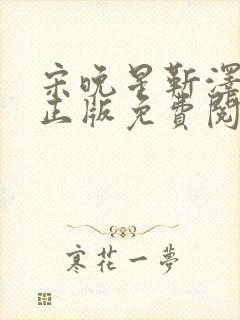 宋晚星靳澤
正版免費閱
寒花一夢